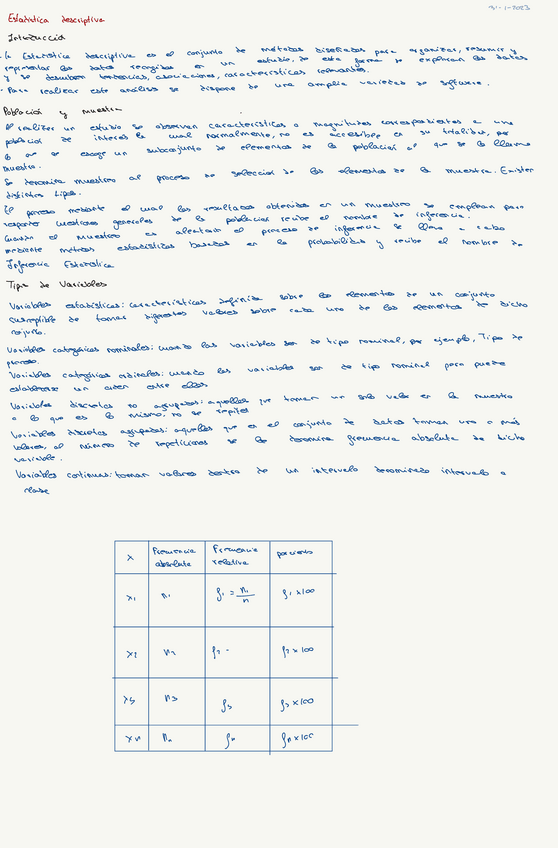 31-1-2023
Estadística descriptiva
Introducción
· La Estadística descriptiva es el conjunto de métodos diseñados para organizar, resumir y
representar los datos recogidos en un estudio, de esta forma se explican los datos
y se describen tendencias, asociaciones, características relevantes.
· Para realizar este análisis se dispone de una amplia variedad de software.
Población y muestra
Al realizar un estudio se observan características o magnitudes correspondientes a una
población de interés la cual normalmente, no es accesible en su totalidad, por
lo que se escoge un subconjunto de elementos de la población al que se le llama
muestra.
Se denomina muestreo al proceso de selección de los elementos de la muestra. Existen
distintos tipos.
El proceso mediante el cual los resultados obtenidos en un muestreo se emplean para
responder cuestiones generales de la población recibe el nombre de inferencia.
Cuando el muestreo es aleatorio el proceso de inferencia se lleva a cabo
mediante métodos estadísticos basados en la probabilidad y recibe el nombre de
Inferencia Estadística
Tipo de Variables
Variables estadísticas: características definida sobre los elementos de un conjunto
susceptible de tomar diferentes valores sobre cada uno de los elementos de dicho
conjunto.
Variables categóricas nominales: cuando las variables son de tipo nominal, por ejemplo, Tipo de
proceso.
Variables categóricas ordinales: cuando las variables son de tipo nominal pero puede
establecerse un orden entre ellos.
Variables discretas no agrupadas: aquellas que toman un solo valor en la muestra
o lo que es lo mismo, no se repiten
Variables discretas agrupadas: aquellas que en el conjunto de datos toman uno o más
valores, al número de repeticiones se le denomina frecuencia absoluta de dicha
variable.
Variables continuas: toman valores dentro de un intervalo denominado intervalo o
clase
x Frecuencia absoluta Frecuencia relativa porciento
x₁ n₁ f₁ = n₁/n f₁ x100
x₂ n₂ f₂ = f₂ x 100
x₃ n₃ f₃ f₃ x 100
xn nn fn fn x 100